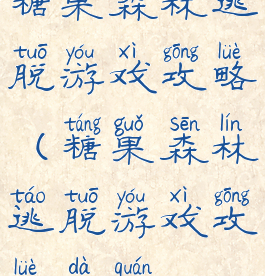 糖果森林逃
tuō yóu xì gōng lüè
脱游戏攻略
táng guǒ sēn lín
(糖果森林
táo tuō yóu xì gōng
逃脱游戏攻
lüè dà quán